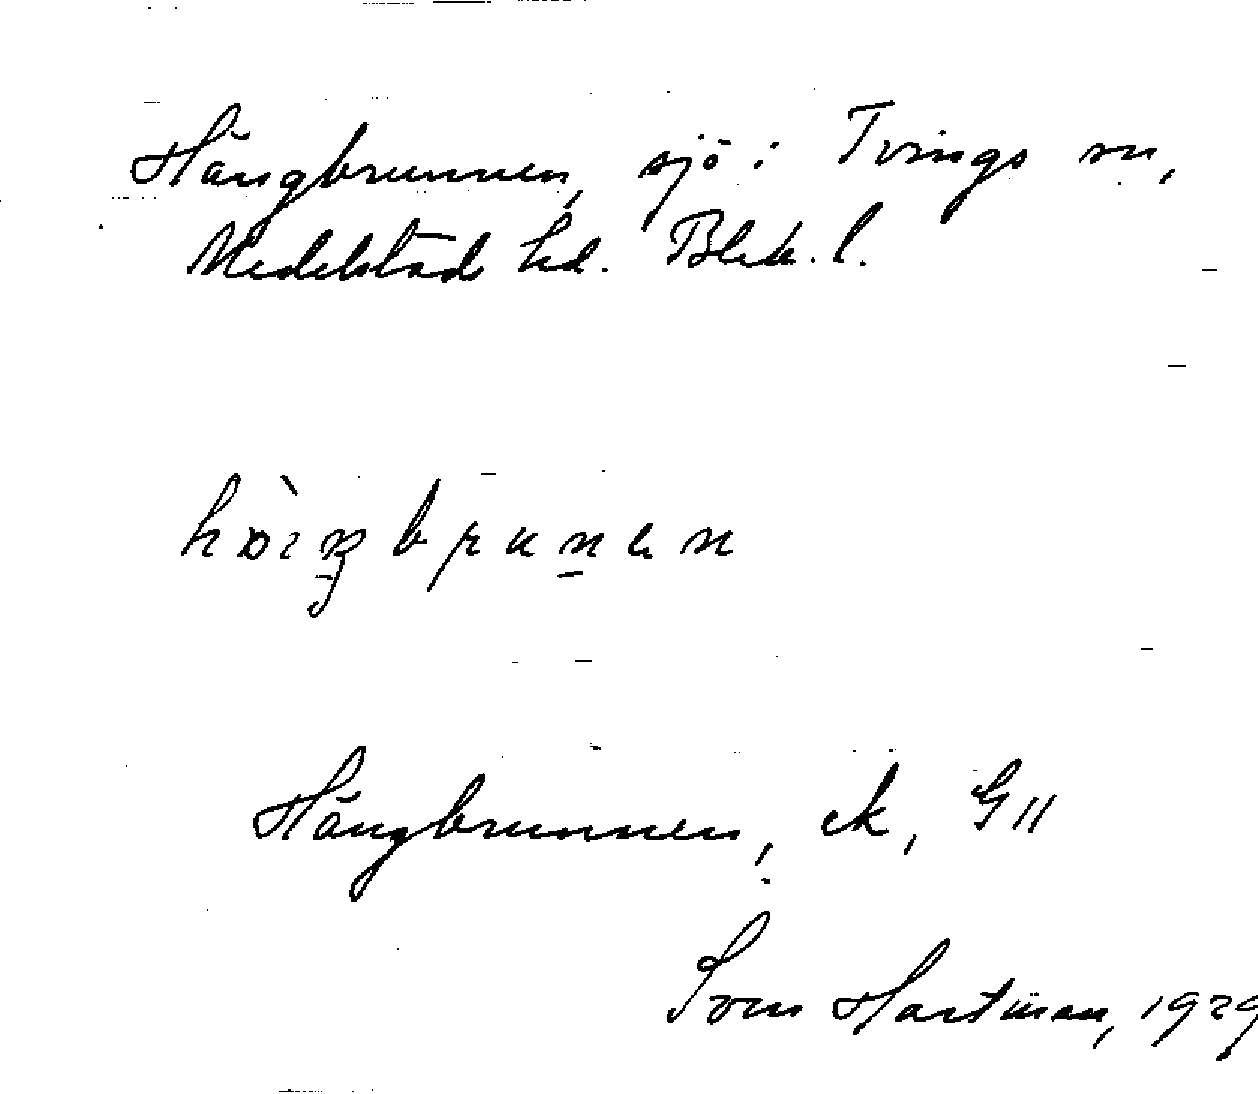 Hångbrunnen, sjö i Tvings sn,
Medelstad hd. Blek. l.
Hångbrunnen, ek, G11
Sven Hartman, 1929